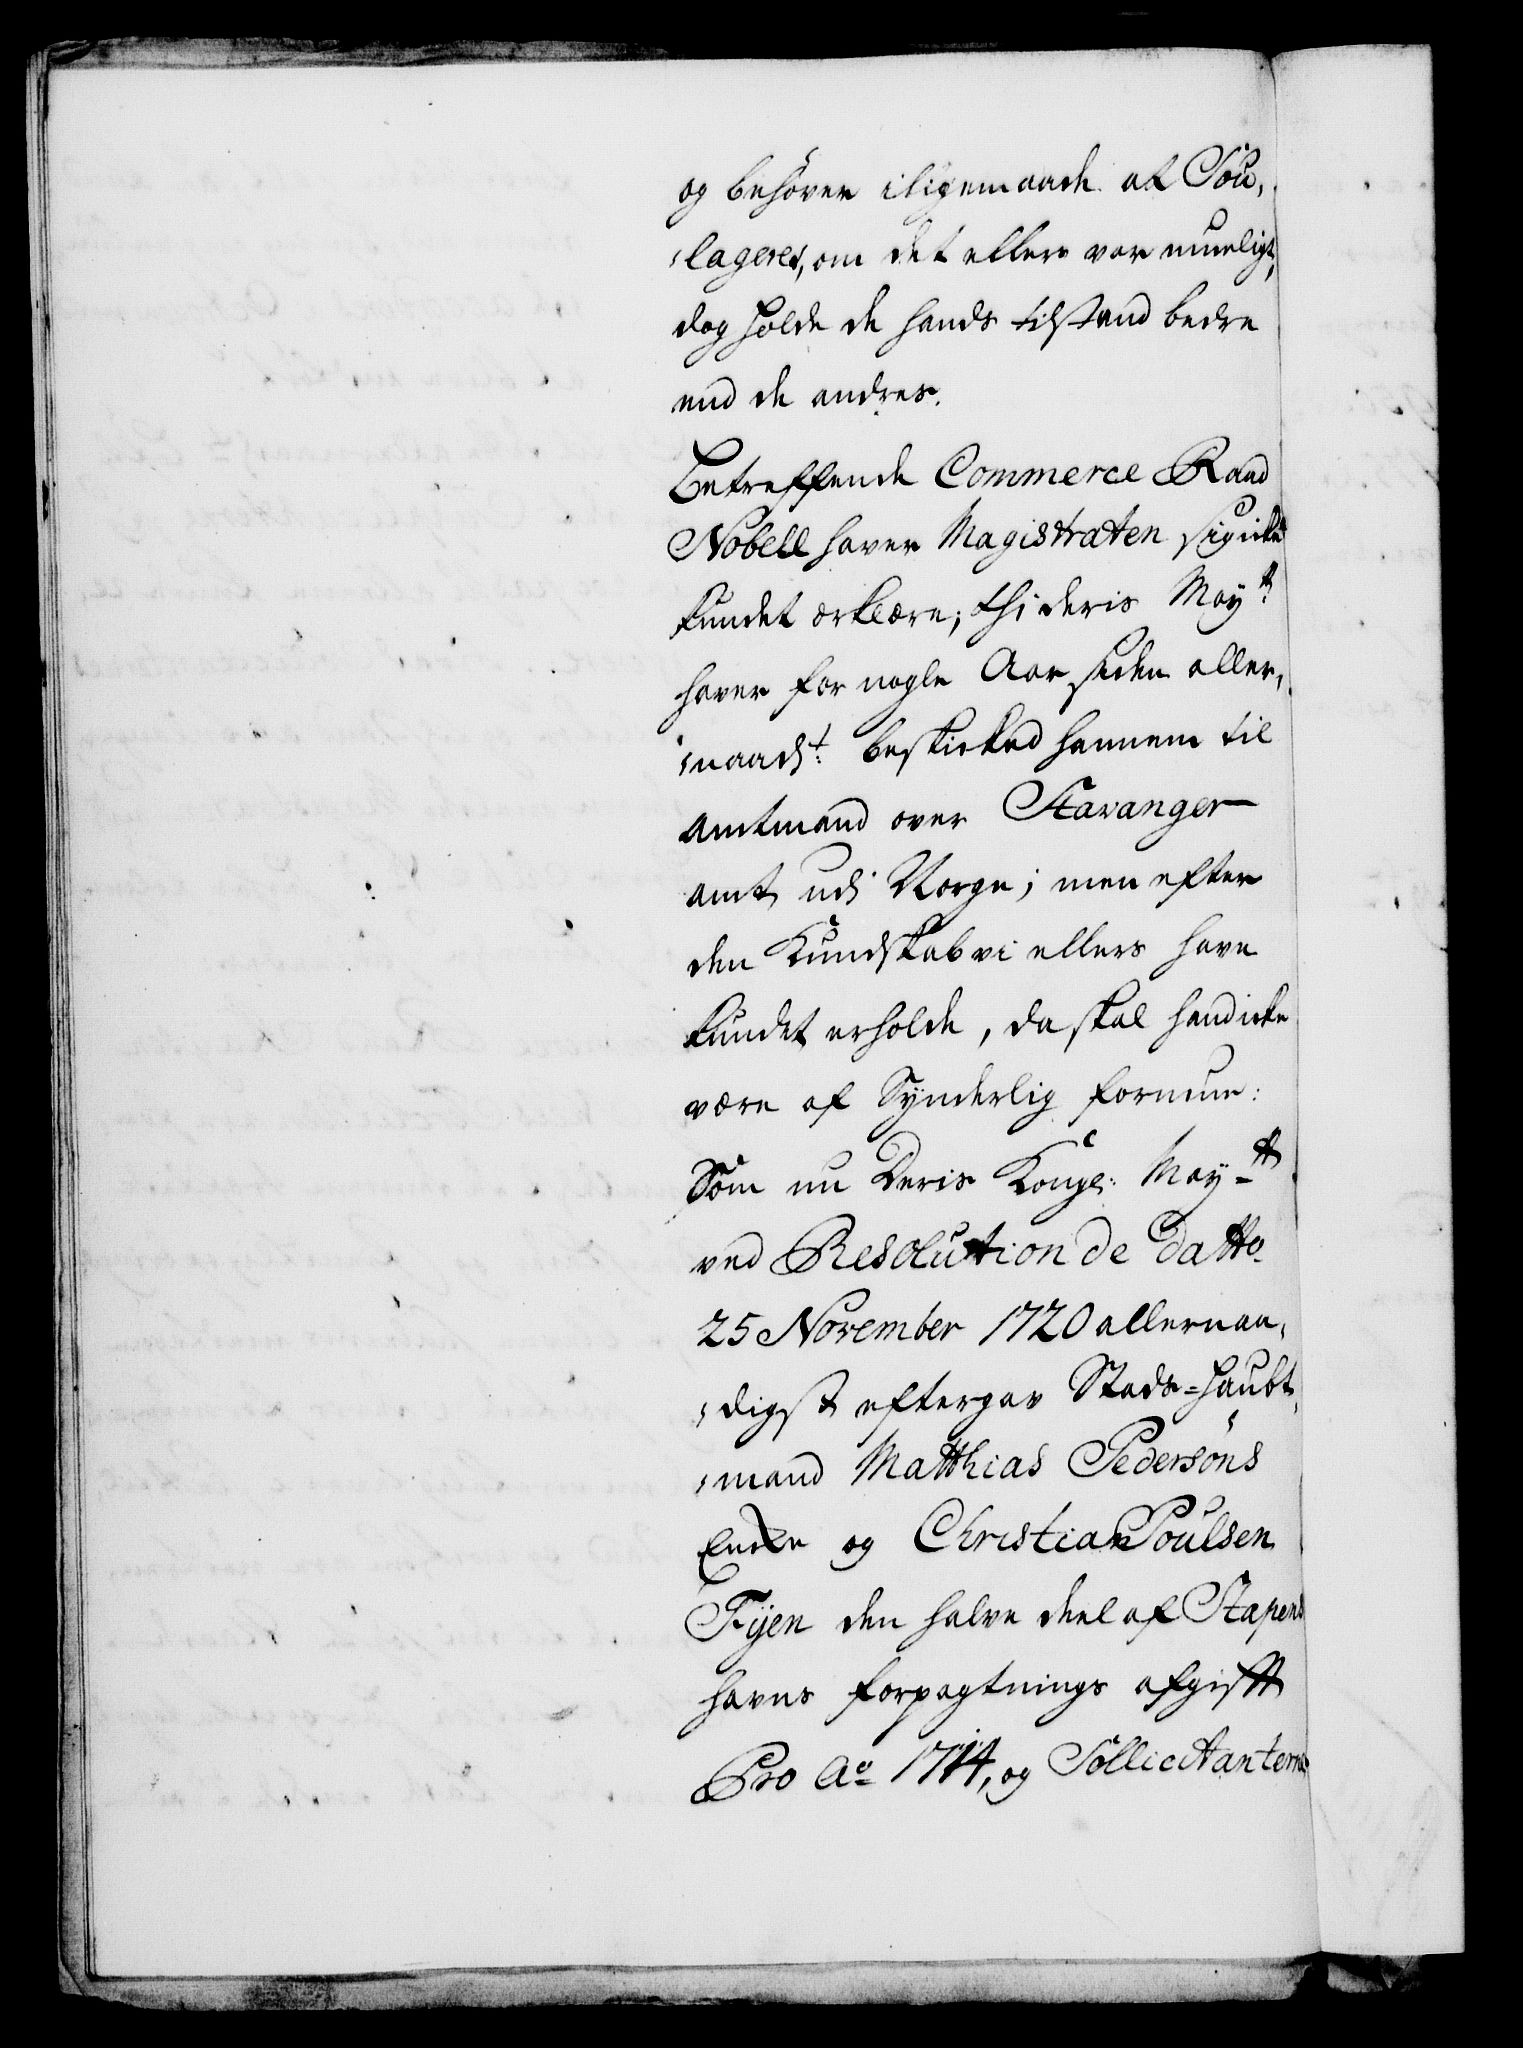 og behøver iligemaade at Sou,
,lageres, om det ellers var mueligt,
dog holde de hands tilstand bedre
end de andres.
Betreffende Commerce Raad
Nobell haver Magistraten sig icke
kundet ærklære; thi deris May:tt
haver for nogle Aar siden aller,
,naadst: beskicked hannem til
Amtmand over Stavanger
amt udi Norge; men efter
den Kundskab vi ellers have
kundet erholde, da skal hand icke
være af Synderlig formue:
Som nu Deris Kongl: May-tt
ved Resolution de Datto
25 November 1720 allernaa,
,digst eftergav Stads=Haubt,
,mand Matthias Pedersöns
Encke og Christian Poulsen
Fyen den halve deel af Stapens
havns forpagtnings afgifft
Pro Ao 1714, og Sollicitanterne